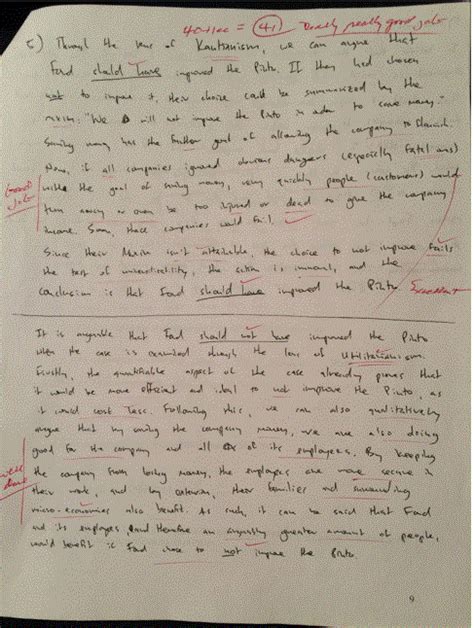 40+1ec = 41 Really really good job
5) Through the lens of Kantianism, we can argue that
Ford should have improved the Pinto. If they had chosen
not to improve it, their choice could be summarized by the
maxim: "We will not improve the Pinto in order to save money."
Saving money has the further goal of allowing the company to flourish.
Now, if all companies ignored obvious dangers (especially fatal ones)
Good Job
with the goal of saving money, very quickly people (customers) would
turn away or even be too injured or dead to give the company
income. Soon, these companies would fail.
Since their Maxim isn't attainable, the choice to not improve fails
the test of universalizability, the action is immoral, and the
conclusion is that Ford should have improved the Pinto. Excellent
It is arguable that Ford should not have improved the Pinto
when the case is examined through the lens of Utilitarianism.
Firstly, the quantifiable aspect of the case already proves that
it would be more efficient and ideal to not improve the Pinto, as
it would cost less. Following this, we can also qualitatively
argue that by saving the company money, we are also doing
good for the company and all of its employees. By keeping
well done
the company from losing money, the employees are more secure in
their work, and by extension, their families and surrounding
micro-economies also benefit. As such, it can be said that Ford
and its employees, and therefore an arguably greater amount of people,
would benefit if Ford chose to not improve the Pinto.
9